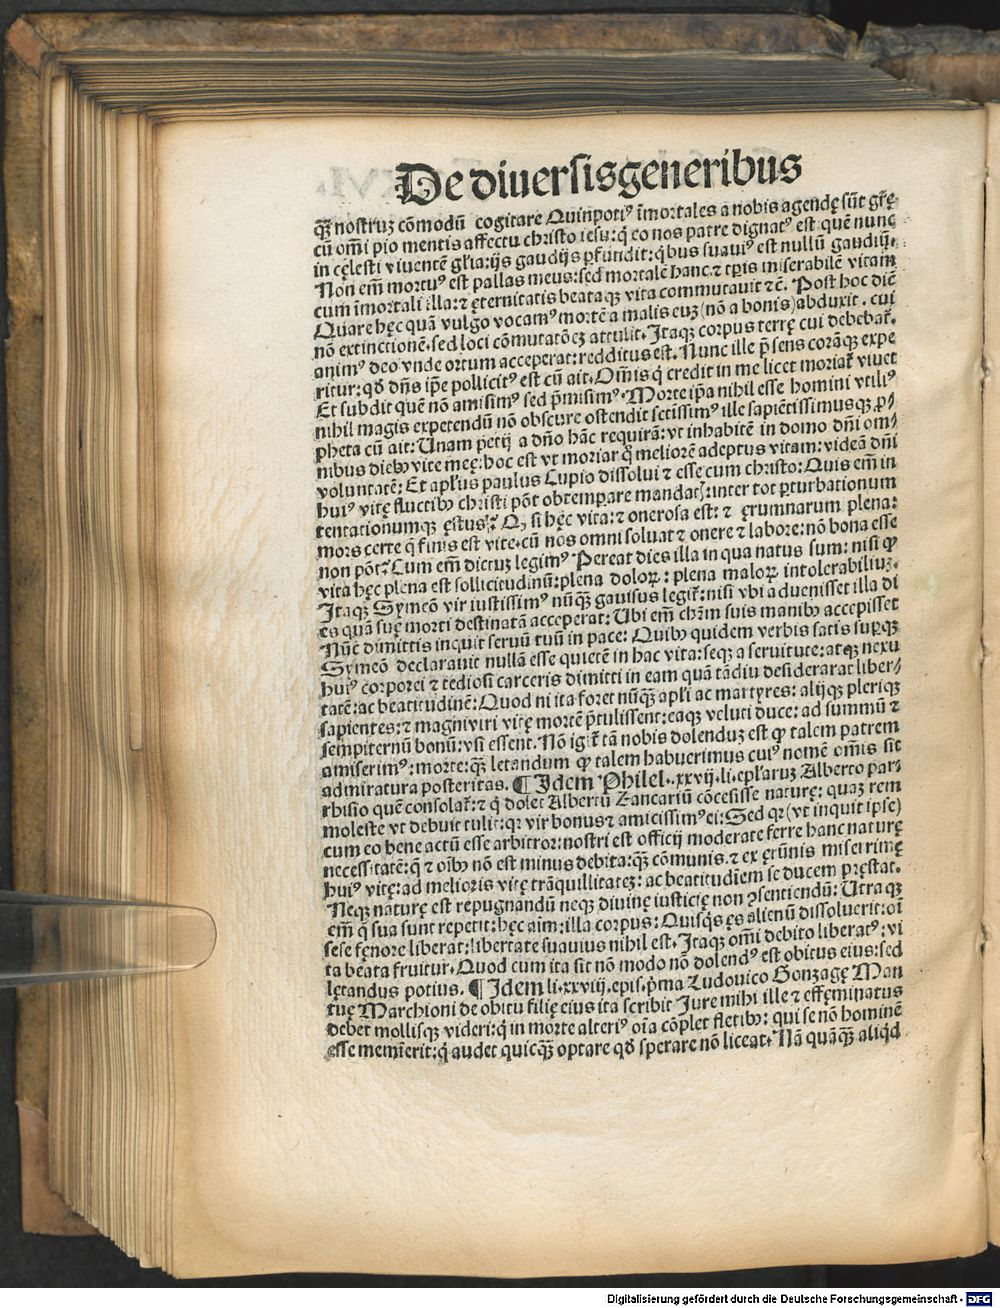 De diuersis generibus
qꝫ nostruꝫ cōmodū cogitare Quinpotiꝰ īmortales a nobis agendę sūt grę̄
cū om̄i pio mentis affectu christo iesu: q̄ eo nos patre dignatꝰ est quē nunc
in cęlesti viuentē gl̄ia: ijs gaudijs ꝑfundit: q̄bus suauiꝰ est nullū gaudiū.
Non em̄ mortuꝰ est pallas meus: sed mortalē hanc ⁊ tꝑis miserabilē vitam
cum īmortali illa: ⁊ ęternitatis beata qꝫ vita commutauit ⁊c̄. Post hoc diē
Quare hęc quā vulgo vocamꝰ mortē a malis euꝫ (nō a bonis) abduxit. cui
nō extinctionē. sed loci cōmutatōeꝫ attulit. Itaqꝫ corpus terrę cui debebat̄.
animꝰ deo vnde ortum acceperat: redditus est. Nunc ille p̄sens corāqꝫ expe
ritur: qđ dn̄s ip̄e pollicitꝰ est cū ait. Om̄is q̄ credit in me licet moriat̄ viuet
Et subdit quē nō amisimꝰ sed p̄misimꝰ. Morte ip̄a nihil esse homini vtiliꝰ
nihil magis expetendū nō obscure ostendit sctīssimꝰ ille sapiētissimusqꝫ ꝓ/
pheta cū ait: Unam petij a dn̄o hāc requirā: vt inhabitē in domo dn̄i om/
nibus diebꝰ vite meę: hoc est vt moriar q̄ meliorē adeptus vitam: videā dn̄i
voluntatē: Et apl̄us paulus Cupio dissolui ⁊ esse cum christo: Quis em̄ in
huiꝰ vitę fluctibꝰ christi pōt obtemꝑare mandatꝭ: inter tot ꝑturbationum
tentationumqꝫ ęstus? Qꝫ si hęc vita: ⁊ onerosa est: ⁊ ęrumnarum plena:
mors certe q̄ finis est vite. cū nos omni soluat ⁊ onere ⁊ labore: nō bona esse
non pōt? Cum em̄ dictuꝫ legimꝰ Pereat dies illa in qua natus sum: nisi ꝙ
vita hęc plena est sollicitudinū: plena doloꝝ: plena maloꝝ intolerabiliuꝫ.
Itaqꝫ Symeō vir iustissimꝰ nūqꝫ gauisus legit̄: nisi vbi aduenisset illa di
es quā suę morti destinatā acceperat: Ubi em̄ chm̄ suis manibꝰ accepisset
Nūc dimittis inquit seruū tuū in pace: Quibꝰ quidem verbis satis suꝑqꝫ
Symeō declarauit nullā esse quietē in hac vita: seqꝫ a seruitute: atqꝫ nexu
huiꝰ corporei ⁊ tediosi carceris dimitti in eam quā tādiu desiderarat liber/
tatē: ac beatitudinē: Quod ni ita foret nūqꝫ apl̄i ac martyres: alijqꝫ pleriqꝫ
sapientes: ⁊ magni viri vitę mortē p̄tulissent: eaqꝫ veluti duce: ad summū ⁊
sempiternū bonū: vsi essent. Nō igit̄ tā nobis dolenduꝫ est ꝙ talem patrem
amiserimꝰ: morte: qꝫ letandum ꝙ talem habuerimus cuiꝰ nomē om̄is sit
admiratura posteritas. ¶ Idem Philel. xxvij. li. ep̄laruꝫ Alberto par/
rhisio quē consolat̄: ⁊ q̄ dolet Albertū Zancariū cōcesisse naturę: quaꝫ rem
moleste vt debuit tulit: qꝛ vir bonus ⁊ amicissimꝰ ei: Sed qꝛ (vt inquit ipse)
cum eo bene actū esse arbitror: nostri est officij moderate ferre hanc naturę
necessitatē: q̄ ⁊ oībꝰ nō est minus debita: qꝫ cōmunis. ⁊ ex ęrūnis miserrimę
huiꝰ vitę: ad melioris vitę trāquillitateꝫ: ac beatitudīem se ducem pręstat.
Neqꝫ naturę est repugnandū neqꝫ diuinę iusticię non ꝯsentiendū: Utraqꝫ
em̄ q̄ sua sunt repetit: hęc aīm: illa corpus: Quisq̄s ęs alienū dissoluerit: oī
sese fęnore liberat: libertate suauius nihil est. Itaqꝫ om̄i debito liberatꝰ: vi
ta beata fruitur. Quod cum ita sit nō modo nō dolendꝰ est obitus eius: sed
lętandus potius. ¶ Idem li. xxviij. epis. p̄ma Ludouico Gonzagę Man
tuę Marchioni de obitu filię eius ita scribit Iure mihi ille ⁊ effęminatus
debet mollisqꝫ videri: q̄ in morte alteriꝰ oīa cōplet fletibꝰ: qui se nō hominē
esse memīerit: q̄ audet quicqꝫ optare qđ sperare nō liceat. Nā quāqꝫ aliq̄d
Digitalisierung gefördert durch die Deutsche Forschungsgemeinschaft - DFG